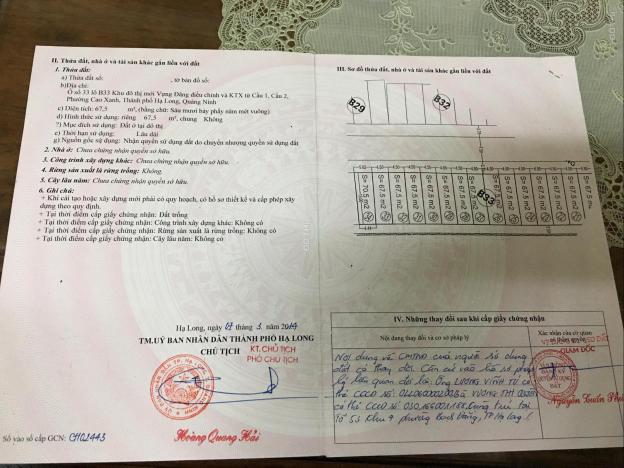 II. Thửa đất, nhà ở và tài sản khác gắn liền với đất
1. Thửa đất:
a) Thửa đất số: , tờ bản đồ số:
b) Địa chỉ:
Ô số 33 lô B33 Khu đô thị mới Vựng Đâng điều chỉnh và KTX từ Cầu 1, Cầu 2,
Phường Cao Xanh, Thành phố Hạ Long, Quảng Ninh
c) Diện tích: 67,5 m², (bằng chữ: Sáu mươi bảy phẩy năm mét vuông)
d) Hình thức sử dụng: riêng 67,5 m², chung Không
đ) Mục đích sử dụng: Đất ở tại đô thị
e) Thời hạn sử dụng: Lâu dài
g) Nguồn gốc sử dụng: Nhận quyền sử dụng đất do chuyển nhượng quyền sử dụng đất
2. Nhà ở: Chưa chứng nhận quyền sở hữu.
3. Công trình xây dựng khác: Chưa chứng nhận quyền sở hữu.
4. Rừng sản xuất là rừng trồng: Không.
5. Cây lâu năm: Chưa chứng nhận quyền sở hữu.
6. Ghi chú:
+ Khi cải tạo hoặc xây dựng mới phải có quy hoạch, có hồ sơ thiết kế và cấp phép xây
dựng theo quy định.
+ Tại thời điểm cấp giấy chứng nhận: Đất trống
+ Tại thời điểm cấp giấy chứng nhận: Công trình xây dựng khác: Không có
+ Tại thời điểm cấp giấy chứng nhận: Rừng sản xuất là rừng trồng: Không có
+ Tại thời điểm cấp giấy chứng nhận: Cây lâu năm: Không có
Hạ Long, ngày tháng 3 năm
TM.UỶ BAN NHÂN DÂN THÀNH PHỐ HẠ LONG
CHỦ TỊCH
KT.CHỦ TỊCH
PHÓ CHỦ TỊCH
Hoàng Quang Hải
Số vào sổ cấp GCN: CH02443
III. Sơ đồ thửa đất, nhà ở và tài sản khác gắn liền với đất
B29
B32
B33
S=70.9 m2
S=67.5 m2
S=67.5 m2
S=67.5 m2
S=67.5 m2
S=67.5 m2
S=67.5 m2
IV. Những thay đổi sau khi cấp giấy chứng nhận
Nội dung thay đổi và cơ sở pháp lý
Xác nhận của cơ quan
có thẩm quyền
GIÁM ĐỐC
Nội dung về CMTND của người sử dụng
đất có thay đổi. Căn cứ vào hồ sơ pháp
lý liên quan đổi lại: Ông LƯƠNG VĨNH TÚ có
thẻ CCCD số: Bà VƯƠNG THỊ
có thẻ CCCD số: cùng trú tại
Tổ 53 Khu 4 phường Bạch Đằng, TP Hạ Long
Nguyễn Tuấn